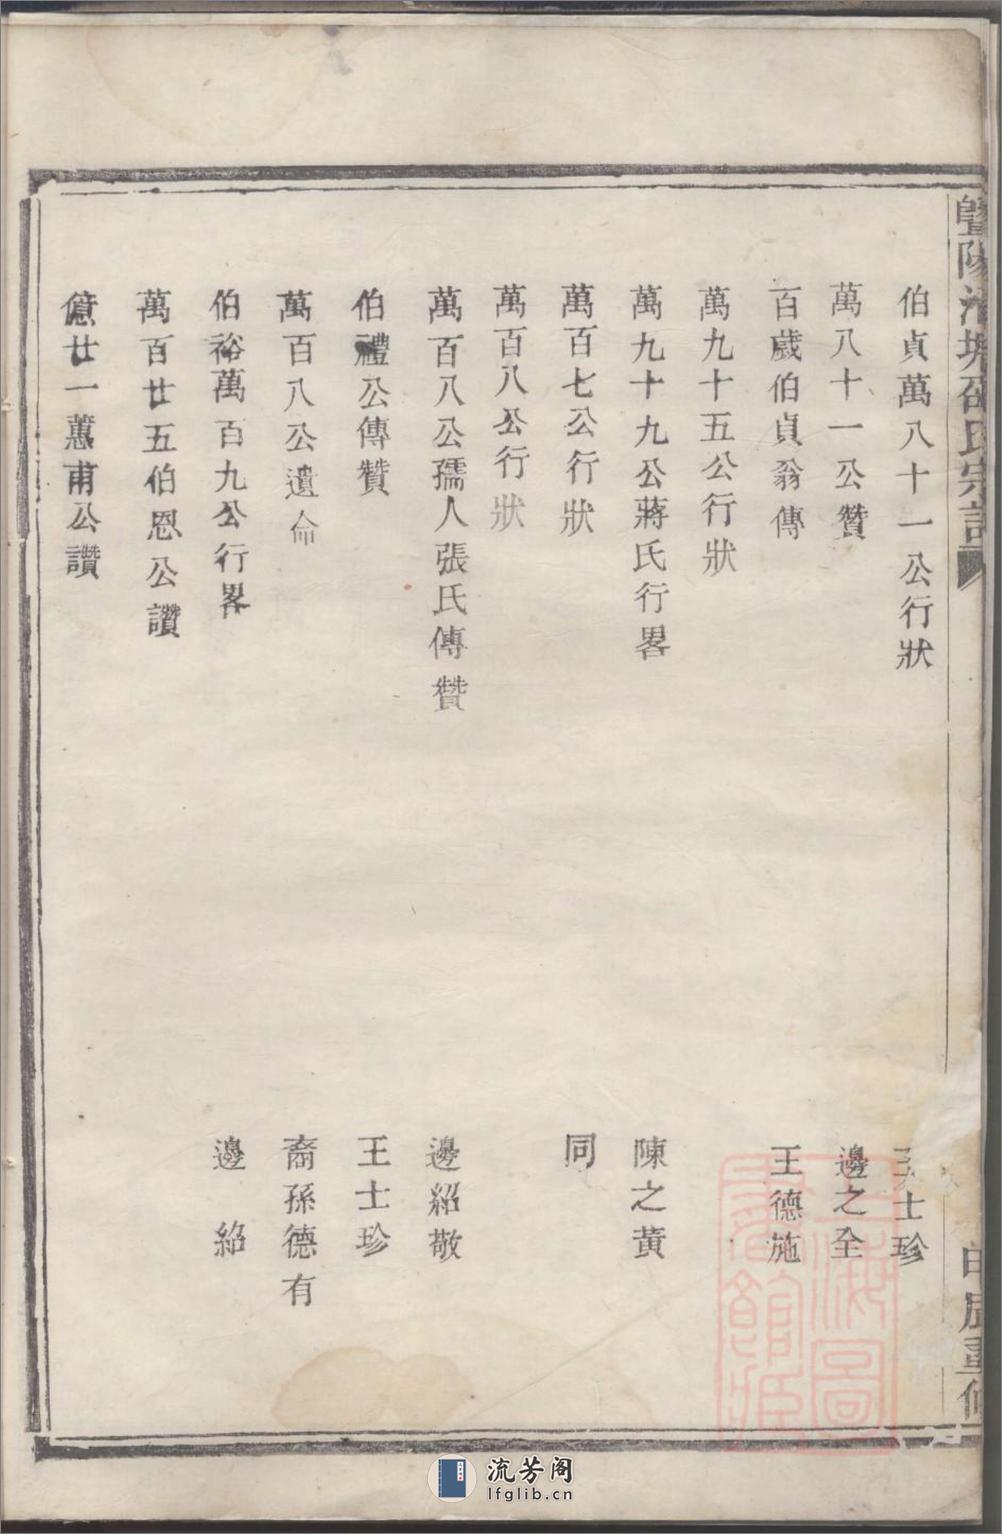 暨陽 塘邵氏宗譜
伯貞萬八十一公行狀 王士珍
萬八十一公贊 邊之全
百歲伯貞翁傳 王德施
萬九十五公行狀
萬九十九公蔣氏行畧 陳之黃
萬百七公行狀 同
萬百八公行狀
萬百八公孺人張氏傳贊 邊紹敬
伯禮公傳贊 王士珍
萬百八公遺命 裔孫德有
伯裕萬百九公行畧 邊紹
萬百廿五伯恩公讚
億廿一蕙甫公讚
上海圖書館藏
流芳阁
lfglib.cn